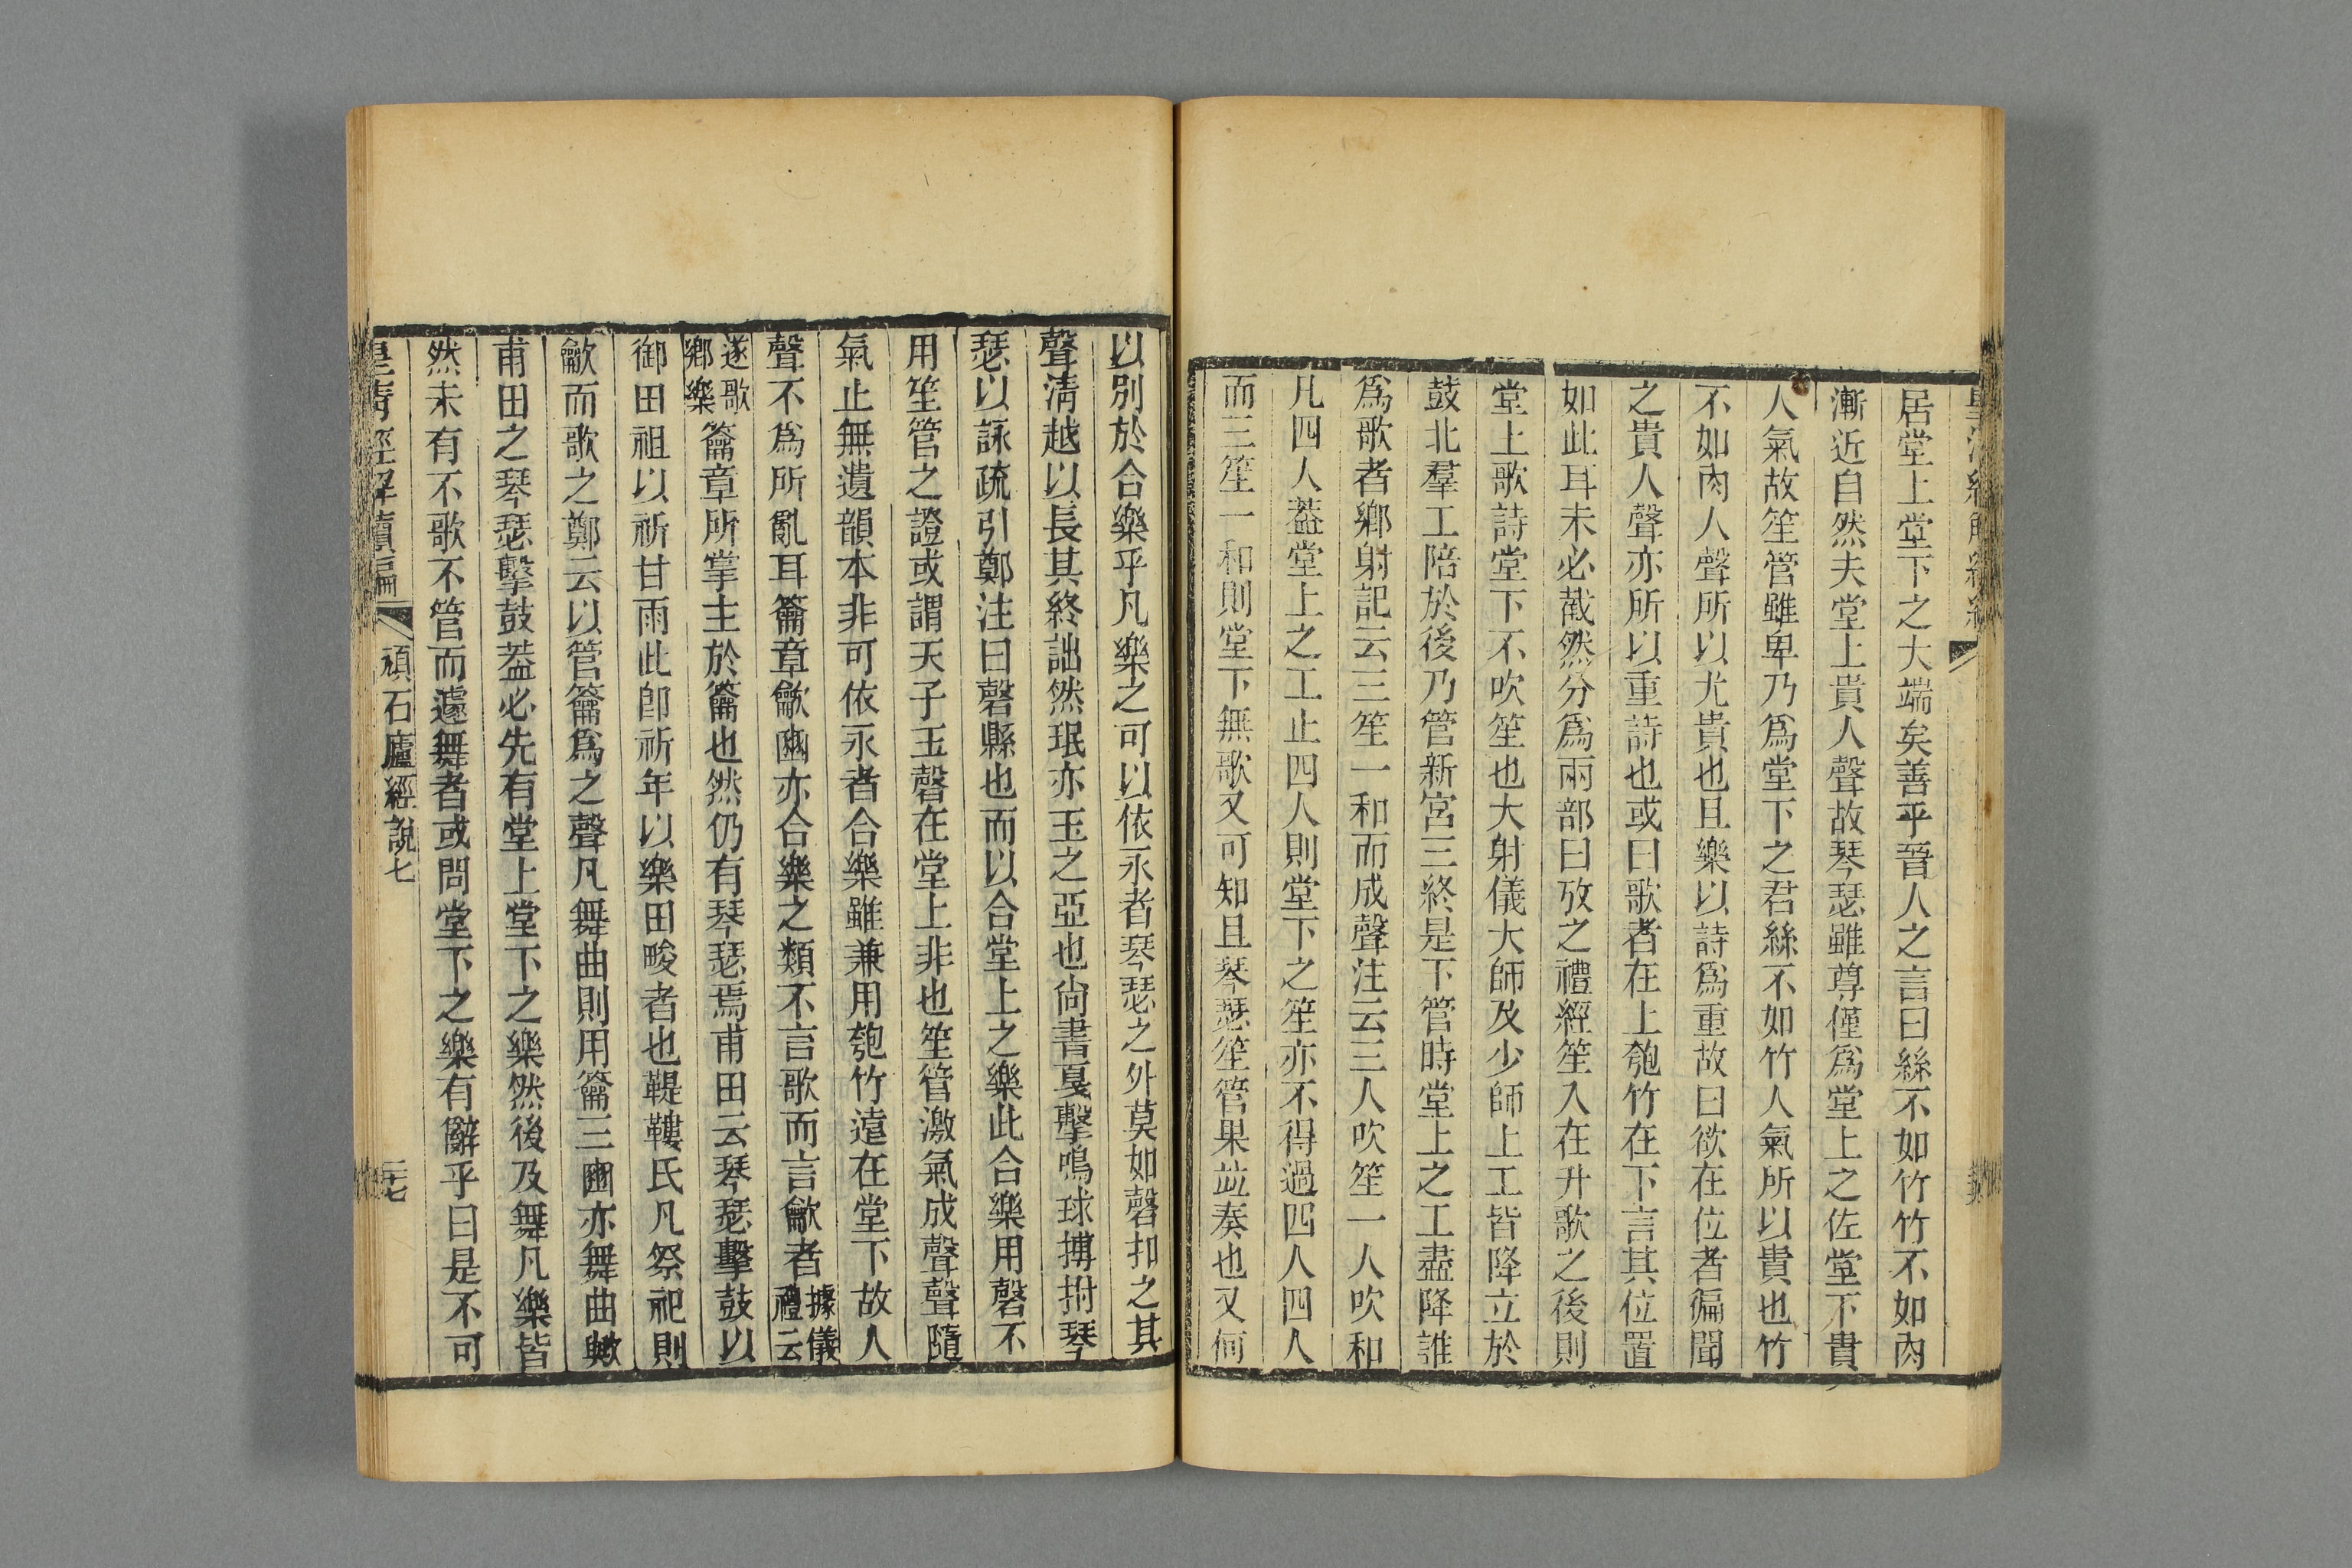 居堂上堂下之大端矣善乎晉人之言曰絲不如竹竹不如肉
漸近自然夫堂上貴人聲故琴瑟雖尊僅為堂上之佐堂下貴
人氣故笙管雖卑乃爲堂下之君絲不如竹人氣所以貴也竹
不如肉人聲所以尤貴也且樂以詩爲重故曰欲在位者徧聞
之貴人聲亦所以重詩也或曰歌者在上匏竹在下言其位置
如此耳未必截然分爲兩部曰攷之禮經笙入在升歌之後則
堂上歌詩堂下不吹笙也大射儀大師及少師上工皆降立於
鼓北羣工陪於後乃管新宮三終是下管時堂上之工盡降誰
爲歌者鄉射記云三笙一和而成聲注云三人吹笙一人吹和
凡四人葢堂上之工止四人則堂下之笙亦不得過四人四人
而三笙一和則堂下無歌又可知且琴瑟笙管果竝奏也又何
以別於合樂乎凡樂之可以依永者琴瑟之外莫如磬扣之其
聲淸越以長其終詘然珉亦玉之亞也尙書戛擊鳴球搏拊琴
瑟以詠疏引鄭注曰磬縣也而以合堂上之樂此合樂用磬不
用笙管之證或謂天子玉磬在堂上非也笙管激氣成聲聲隨
氣止無遺韻本非可依永者合樂雖兼用匏竹遠在堂下故人
聲不爲所亂耳籥章龡豳亦合樂之類不言歌而言龡者據儀禮云
遂歌鄉樂籥章所掌主於籥也然仍有琴瑟焉甫田云琴瑟擊鼓以
御田祖以祈甘雨此卽祈年以樂田畯者也鞮鞻氏凡祭祀則
龡而歌之鄭云以管籥爲之聲凡舞曲則用籥三豳亦舞曲歟
甫田之琴瑟擊鼓葢必先有堂上堂下之樂然後及舞凡樂皆
然未有不歌不管而遽舞者或問堂下之樂有辭乎曰是不可
皇淸經解續編 頑石廬經說七 二七